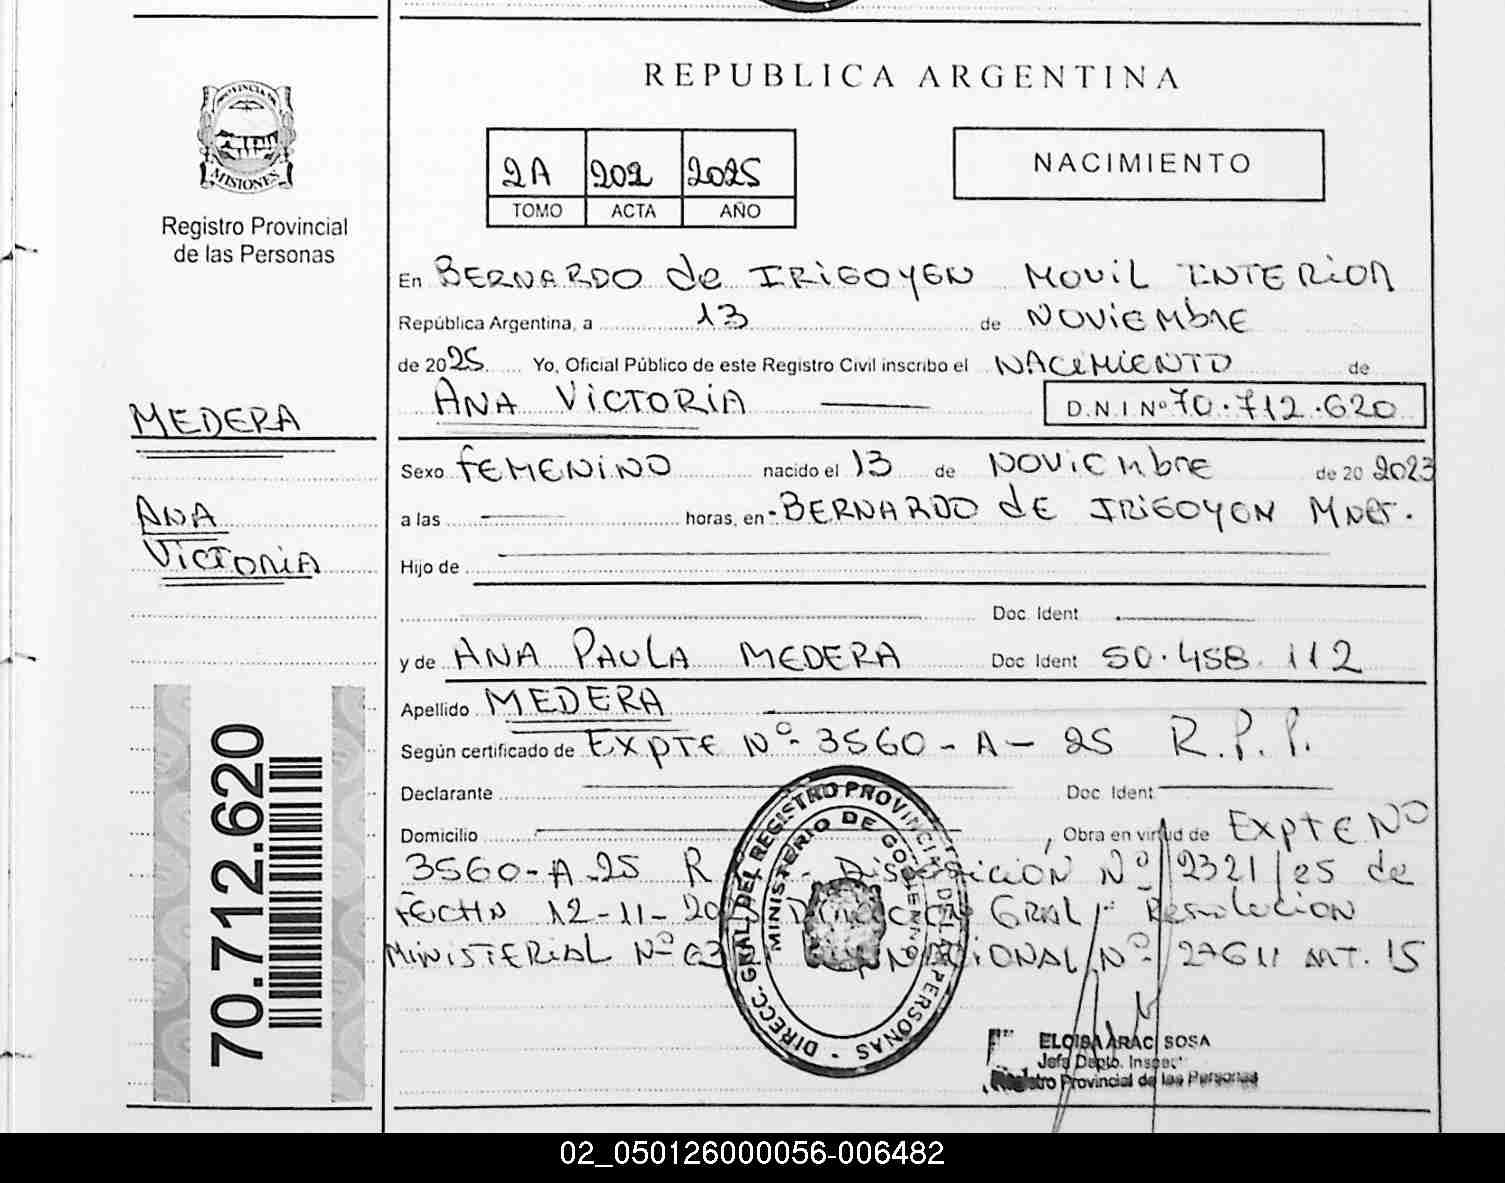 REPUBLICA ARGENTINA
PROVINCIA DE
MISIONES
Registro Provincial
de las Personas
2A 202 2025
TOMO ACTA AÑO
NACIMIENTO
En BERNARDO de IRIGOYEN MOVIL INTERIOR
República Argentina, a 13 de NOVIEMbRE
de 2025 Yo, Oficial Público de este Registro Civil inscribo el NACIMIENTO de
ANA VICTORIA D.N.I.Nº 70.712.620
MEDERA
ANA
VICTORIA
Sexo FEMENINO nacido el 13 de NOVIEMbRE de 20 2023
a las horas, en BERNARDO dE IRIGOYEN
Hijo de
Doc. Ident
y de ANA PAULA MEDERA Doc Ident 50.458.112
Apellido MEDERA
Según certificado de EXPTE Nº 3560-A-25 R.P.P.
Declarante Doc. Ident
Domicilio , Obra en virtud de EXPTE Nº
3560-A-25 R Disposición Nº 2321/25 de
FECHA 12-11- GRAL Resolucion
MINISTERIAL Nº 63 NACIONAL Nº 27611 ART. 15
DIRECC. GRAL. DEL REGISTRO PROVINCIAL DE LAS PERSONAS
MINISTERIO DE GOBIERNO
ELOISA ARACI SOSA
Jefa Depto.
Registro Provincial de las Personas
70.712.620
02_050126000056-006482